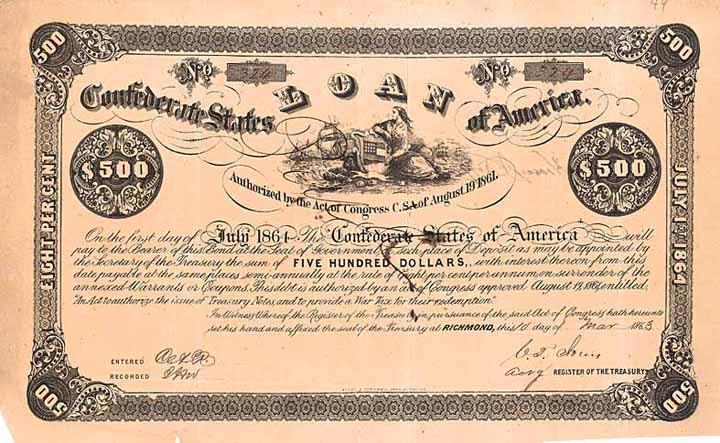 500
500
No 324
No 324
LOAN
Confederate States
of America.
$500
$500
Authorized by the Act of Congress C.S.A. of August 19 1861.
EIGHT PER CENT
JULY 1st 1864
On the first day of July 1864 The Confederate States of America will
pay to the Bearer of this Bond, at the Seat of Government, or such place of Deposit as may be appointed by
the Secretary of the Treasury the sum of FIVE HUNDRED DOLLARS, with interest thereon from this
date, payable at the same places semi-annually at the rate of eight per cent per annum on surrender of the
annexed Warrants or Coupons. This debt is authorized by an act of Congress approved August 19, 1861, entitled,
"An Act to authorize the issue of Treasury Notes, and to provide a War Tax for their redemption."
In Witness Whereof, the Register of the Treasury in pursuance of the said Act of Congress, hath hereunto
set his hand and affixed the seal of the Treasury at RICHMOND, this 10 day of Mar 1863
ENTERED
RECORDED
REGISTER OF THE TREASURY
500
500